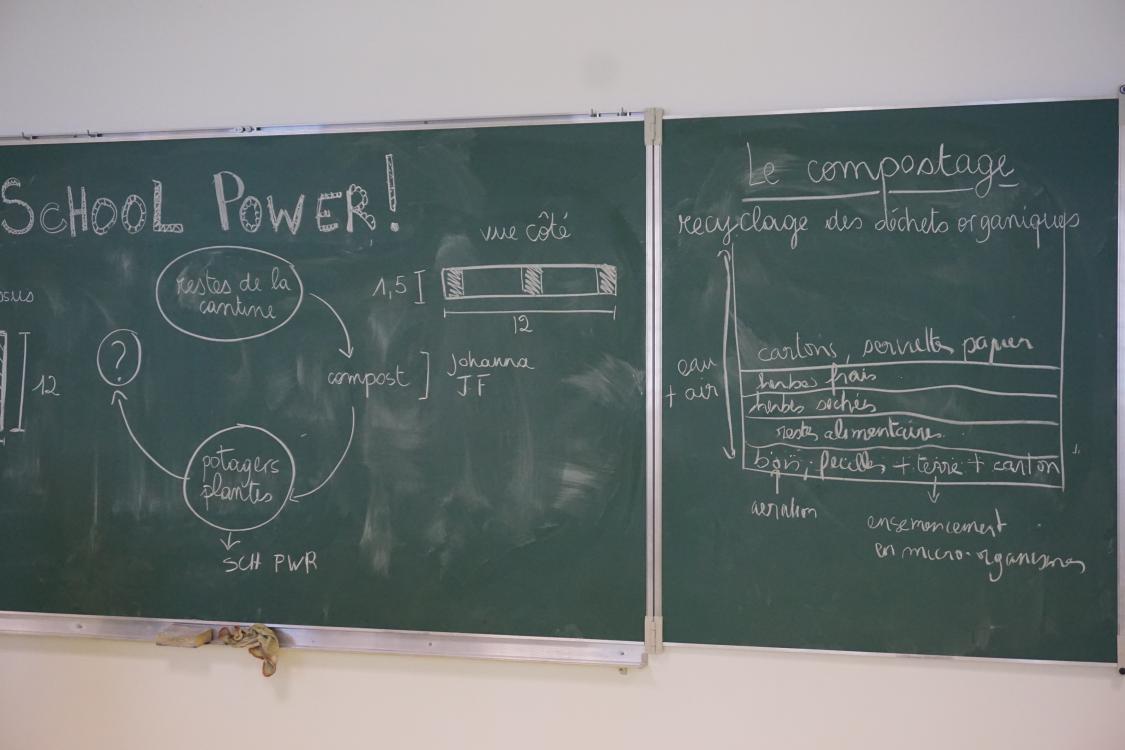 SCHOOL POWER!
restes de la
cantine
?
compost
Johanna
JF
potagers
plantes
SCH PWR
ssus
12
vue côté
1,5
12
Le compostage
recyclage des déchets organiques
eau
+ air
cartons, serviettes papier
herbes frais
herbes sechés
restes alimentaires
bois, feuilles + terre + carton
aeration
ensemencement
en micro-organismes